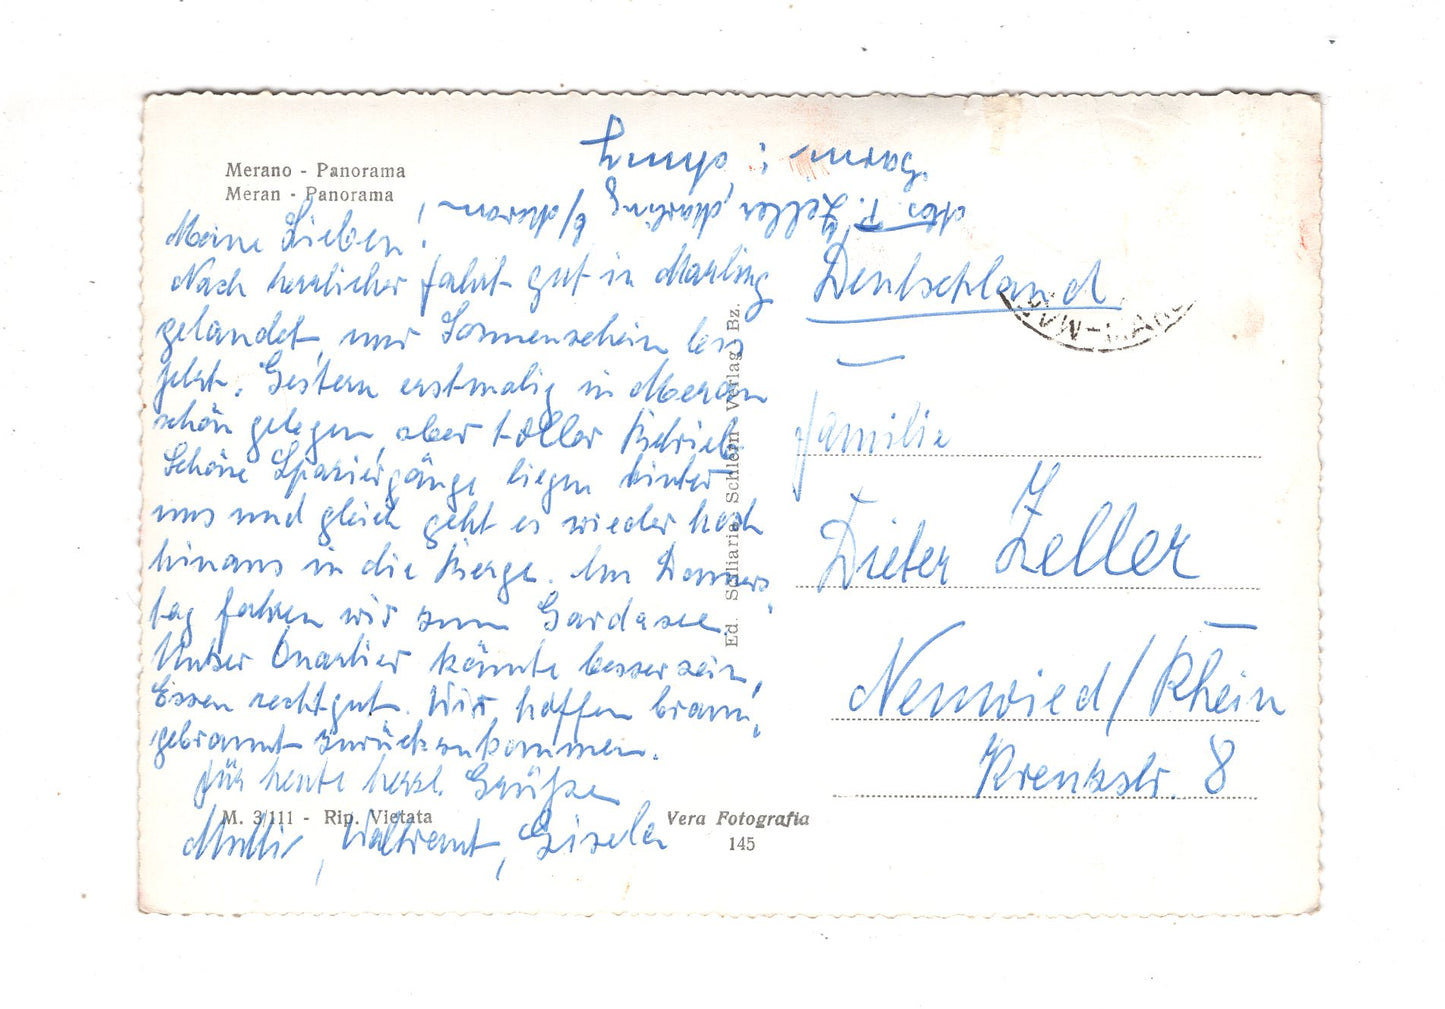 Merano - Panorama
Meran - Panorama
Abs. P. Zeller, Marling b/Meran
Meine Lieben!
Nach herrlicher Fahrt gut in Marling
gelandet, nur Sonnenschein bis
jetzt. Gestern erstmalig in Meran
schön gelegen, aber toller Betrieb
Schöne Spaziergänge liegen hinter
uns und gleich geht es wieder hoch
hinaus in die Berge. Am Donners-
tag fahren wir zum Gardasee.
Unser Quartier könnte besser sein,
Essen recht gut. Wir hoffen braun-
gebrannt zurückzukommen.
Für heute herzl. Grüße
Mutti, Waltraut, Gisela
M. 3/111 - Rip. Vietata
Vera Fotografia
145
Ed. Schlern Verlag Bz.
Deutschland
Familie
Dieter Zeller
Neuwied/Rhein
Kreuzstr. 8